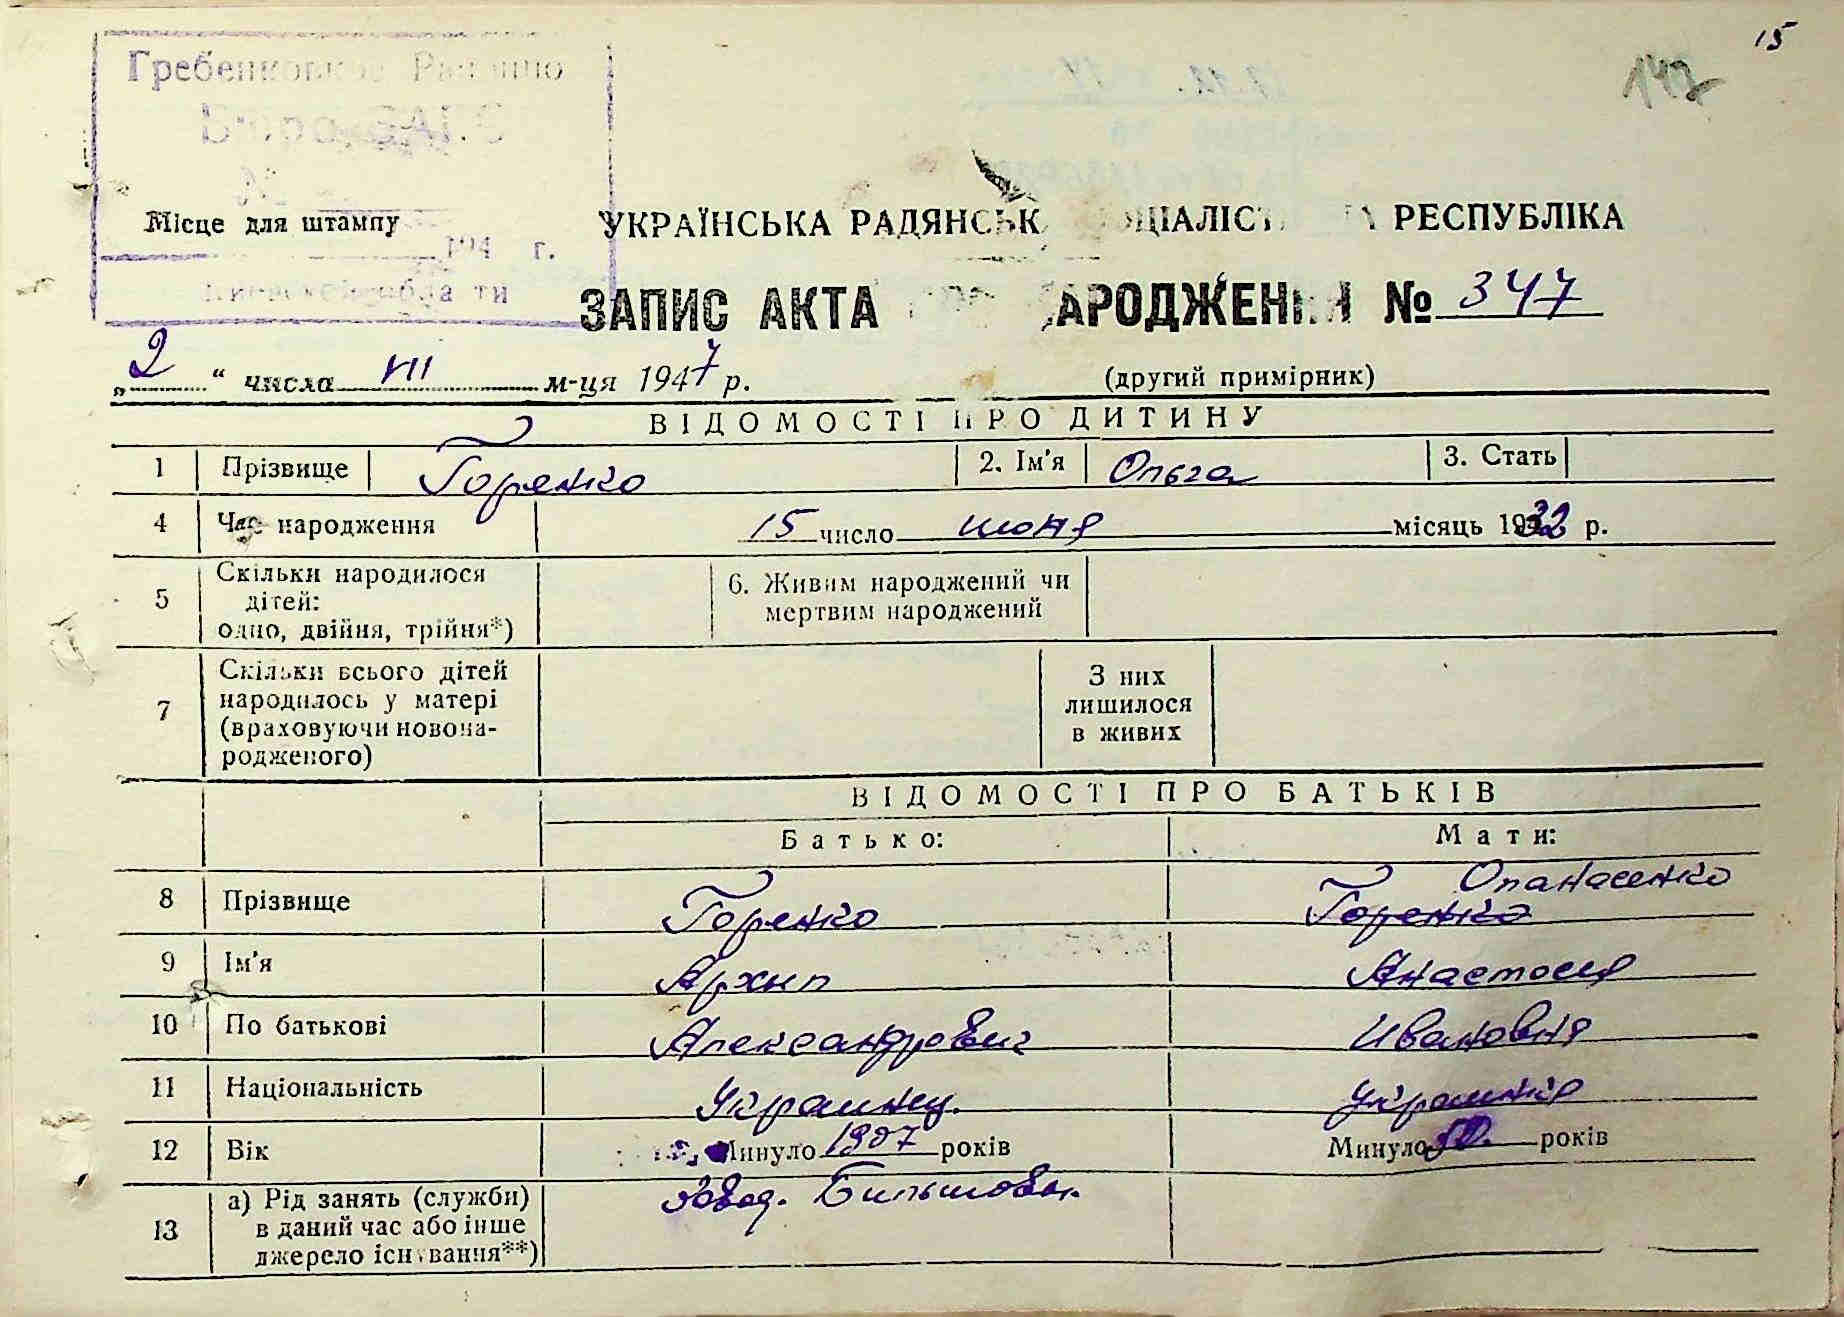 15
147
Місце для штампу
194 г.
УКРАЇНСЬКА РАДЯНСЬК ЦІАЛІСТ А РЕСПУБЛІКА
ЗАПИС АКТА АРОДЖЕННЯ № 347
„ 2 “ числа VII м-ця 1947 р.
(другий примірник)
ВІДОМОСТІ ПРО ДИТИНУ
1 Прізвище Горенко 2. Ім'я Ольга 3. Стать
4 Час народження 15 число июня місяць 1932 р.
5 Скільки народилося дітей: одно, двійня, трійня*) 6. Живим народжений чи мертвим народжений
7 Скільки всього дітей народилось у матері (враховуючи новонародженого) З них лишилося в живих
ВІДОМОСТІ ПРО БАТЬКІВ
Батько: Мати:
8 Прізвище Горенко Горенко Опанасенко
9 Ім'я Архип Анастосия
10 По батькові Александрович Ивановня
11 Національність Украинец. Украинка
12 Вік Минуло 1907 років Минуло років
13 а) Рід занять (служби) в даний час або інше джерело існування**)